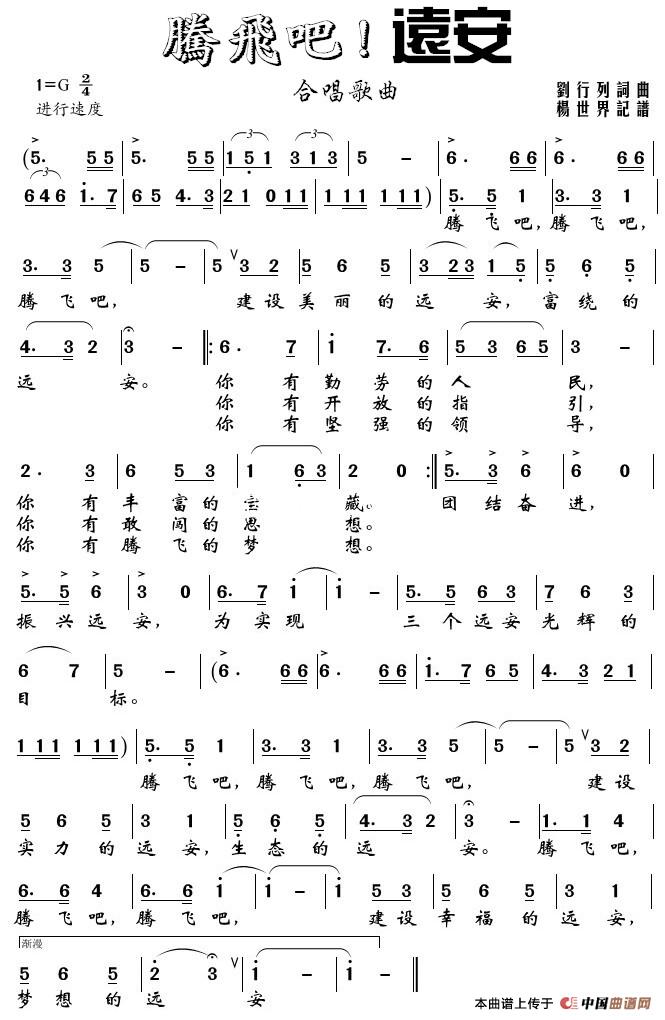 騰飛吧！遠安
1=G 2/4
合唱歌曲
劉行列詞曲
进行速度
楊世界記譜
(5. 55 | 5. 55 | 151 313 | 5 - | 6. 66 | 6. 66 |
646 1. 7 | 65 4. 3 | 21 011 | 111 111) | 5. 5 1 | 3. 3 1 |
腾飞吧，腾飞吧，
3. 3 5 | 5 - | 5 ∨ 3 2 | 5 6 5 | 3 23 1 5 | 5 6 5 |
腾飞吧， 建设美丽的远安，富绕的
4. 3 2 | 3 - |: 6. 7 | 1 7. 6 | 5 3 65 | 3 - |
远安。 你有勤劳的人民，
你有开放的指引，
你有坚强的领导，
2. 3 | 6 53 | 1 63 | 2 0 :| 5. 3 6 | 6 0 |
你有丰富的宝藏。 团结奋进，
你有敢闯的思想。
你有腾飞的梦想。
5. 5 2 | 3 0 | 6. 7 1 | 1 - | 5. 5 6 3 | 7 6 3 |
振兴远安，为实现 三个远安光辉的
6 7 | 5 - | (6. 66 | 6. 66 | 1. 7 65 | 4. 3 21 |
目标。
111 111) | 5. 5 1 | 3. 3 1 | 3. 3 5 | 5 - | 5 ∨ 3 2 |
腾飞吧，腾飞吧，腾飞吧， 建设
5 6 5 | 3 1 | 5 6 5 | 4. 3 2 | 3 - | 1. 1 4 |
实力的远安，生态的远安。 腾飞吧，
6. 6 4 | 6. 6 1 | 1 - | 1 5 3 | 5 3 5 | 3 1 |
腾飞吧，腾飞吧， 建设幸福的远安，
渐漫
5 6 5 | 2 3 ∨ | 1 - | 1 - |
梦想的远安
本曲谱上传于 中国曲谱网